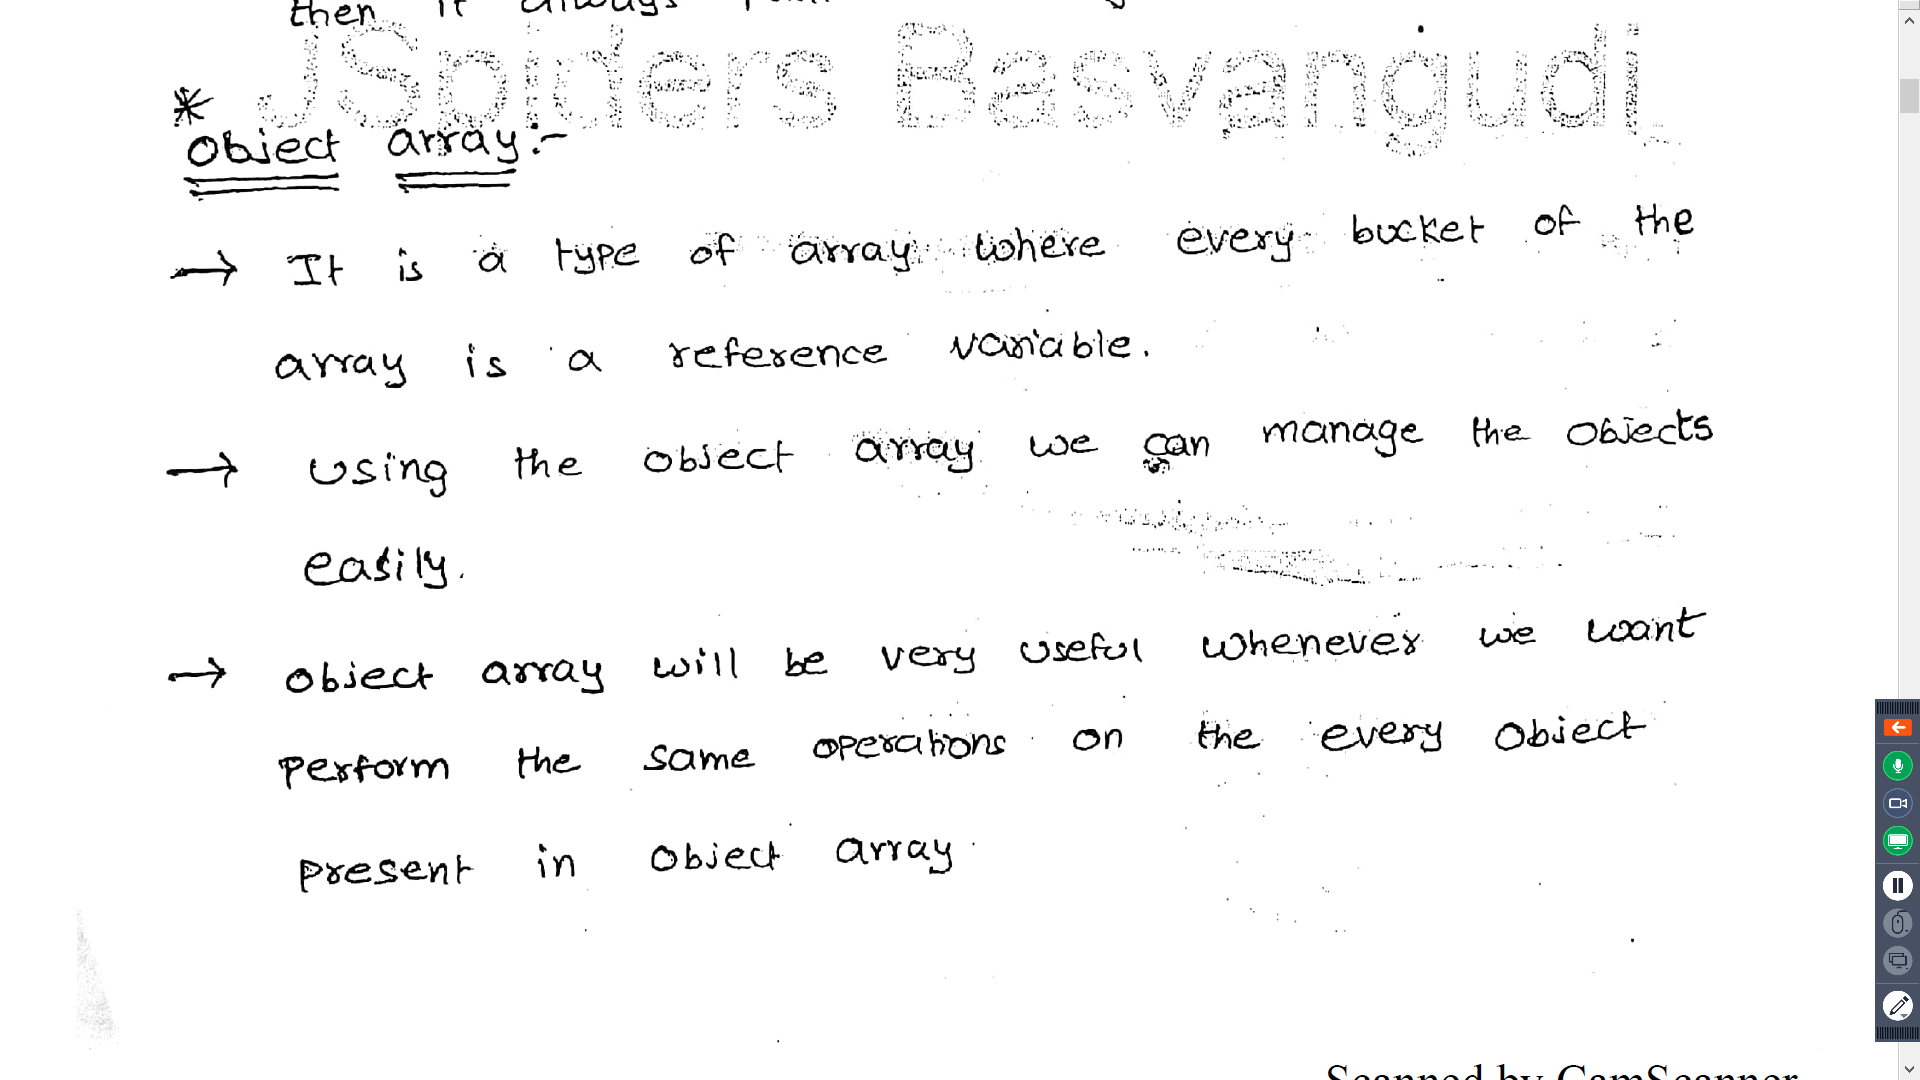 then it always
JSpiders Basvangudi
*
Object array:-
→ It is a type of array where every bucket of the
array is a reference variable.
→ Using the object array we can manage the objects
easily.
→ object array will be very useful whenever we want
perform the same operations on the every object
present in object array.
Scanned by CamScanner